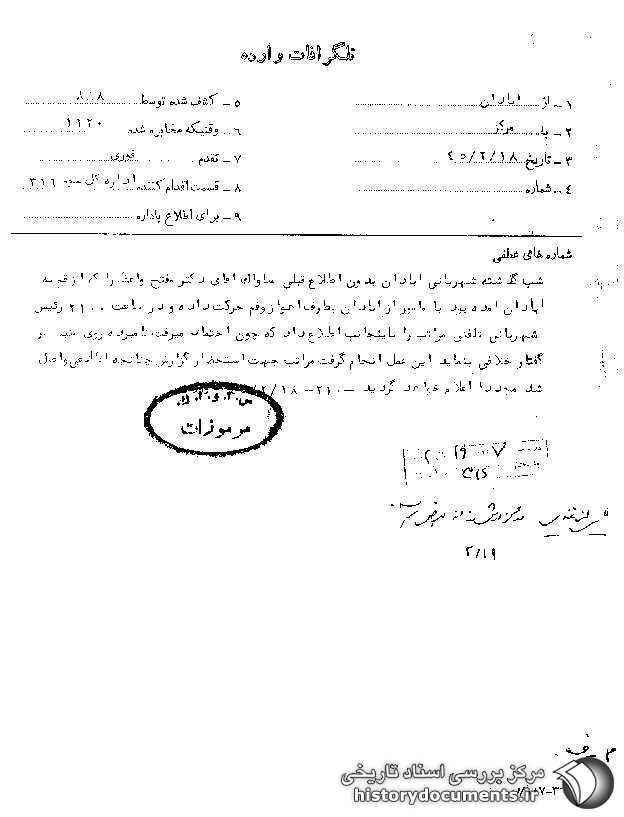 تلگرافات وارده
۱ـ از آبادان
۲ـ به مرکز
۳ـ تاریخ ۴۵/۲/۱۸
۴ـ شماره
۵ـ کشف شده توسط ۸۰۸
۶ـ وقتیکه مخابره شده ۱۱۲۰
۷ـ تقدم فوری
۸ـ قسمت اقدام کننده اداره کل سوم ۳۱۶
۹ـ برای اطلاع باداره
شماره های عطفی
شب گذشته شهربانی آبادان بدون اطلاع قبلی ساواک آقای دکتر مفتح واعظ را که از قم به
آبادان آمده بود با مامور از آبادان بطرف اهواز و قم حرکت داده و در ساعت ۲۱۰۰ رئیس
شهربانی تلفنی مراتب را باینجانب اطلاع داد که چون احتمال میرفت نامبرده روی منبر
گفتار خلافی بنماید این عمل انجام گرفت مراتب جهت استحضار گزارش چنانچه اطلاعی واصل
شد مجددا اعلام خواهد گردید ـ ۲۱۰ـ ۲/۱۸
مرموزات
۲/۱۹
مرکز بررسی اسناد تاریخی
historydocuments.ir